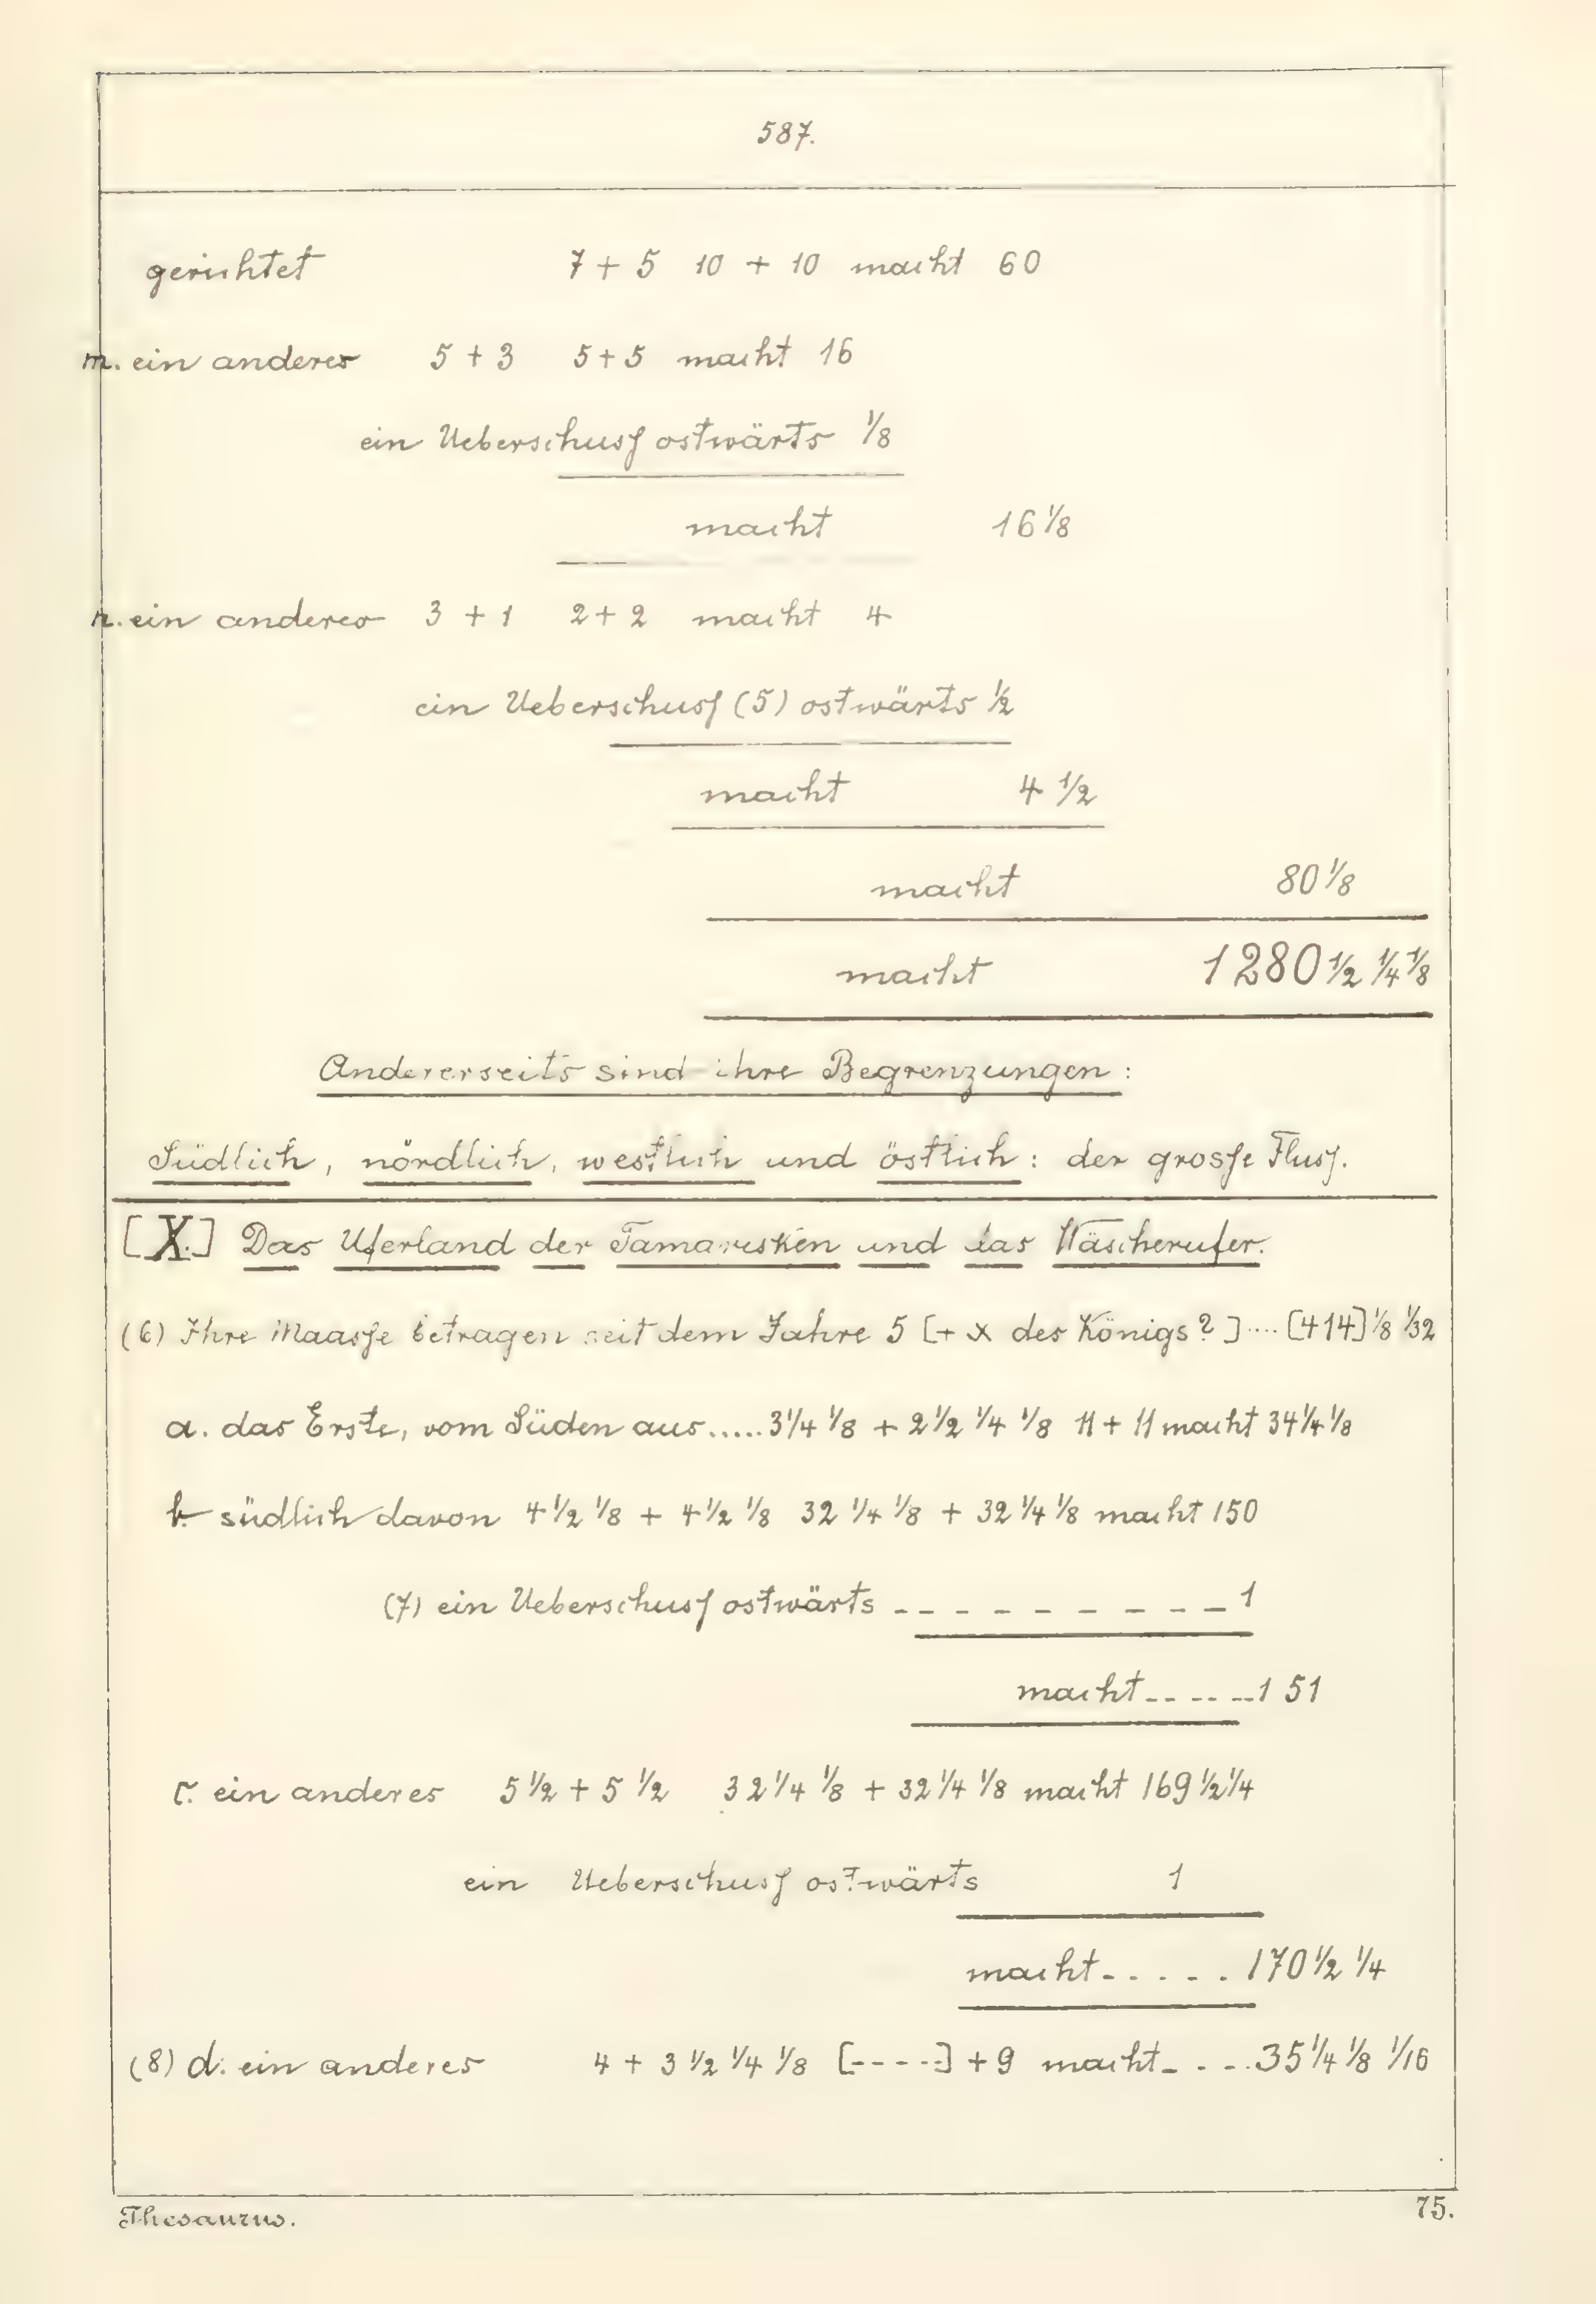 587.
gerichtet 7 + 5 10 + 10 macht 60
m. ein anderes 5 + 3 5 + 5 macht 16
ein Ueberschuss ostwärts 1/8
macht 16 1/8
n. ein anderes 3 + 1 2 + 2 macht 4
ein Ueberschuss (5) ostwärts 1/2
macht 4 1/2
macht 80 1/8
macht 1280 1/2 1/4 1/8
Andererseits sind ihre Begrenzungen :
Südlich, nördlich, westlich und östlich : der grosse Fluss.
[X.] Das Uferland der Tamarisken und das Wäscherufer.
(6) Ihre Maasse betragen seit dem Jahre 5 [+ x des Königs ? ] .... [414] 1/8 1/32
a. das Erste, vom Süden aus ..... 3 1/4 1/8 + 2 1/2 1/4 1/8 11 + 11 macht 34 1/4 1/8
b. südlich davon 4 1/2 1/8 + 4 1/2 1/8 32 1/4 1/8 + 32 1/4 1/8 macht 150
(7) ein Ueberschuss ostwärts _ _ _ _ _ _ _ _ _ 1
macht _ _ _ _ _ 151
c. ein anderes 5 1/2 + 5 1/2 32 1/4 1/8 + 32 1/4 1/8 macht 169 1/2 1/4
ein Ueberschuss ostwärts 1
macht . . . . . 170 1/2 1/4
(8) d. ein anderes 4 + 3 1/2 1/4 1/8 [-----] + 9 macht _ . . . 35 1/4 1/8 1/16
Thesaurus.
75.